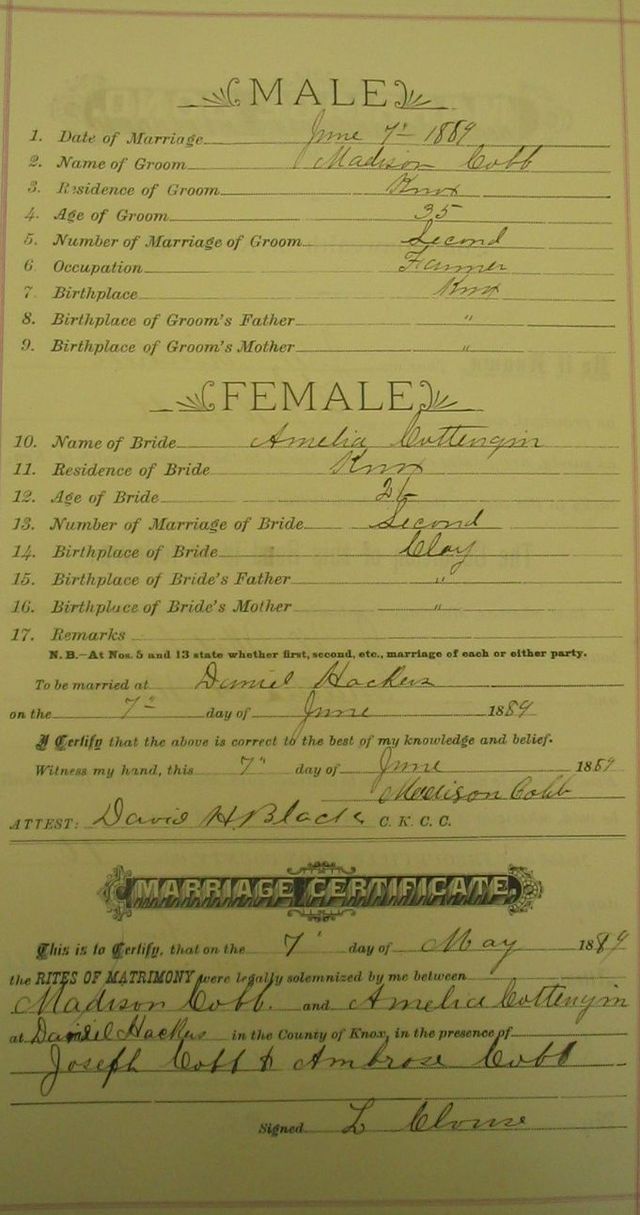 MALE
1. Date of Marriage June 7" 1889
2. Name of Groom Madison Cobb
3. Residence of Groom Knox
4. Age of Groom 35
5. Number of Marriage of Groom Second
6 Occupation Farmer
7 Birthplace Knox
8. Birthplace of Groom's Father "
9. Birthplace of Groom's Mother "
FEMALE
10. Name of Bride Amelia Cottengim
11. Residence of Bride Knox
12. Age of Bride
13. Number of Marriage of Bride Second
14. Birthplace of Bride Clay
15. Birthplace of Bride's Father "
16. Birthplace of Bride's Mother "
17. Remarks
N. B.—At Nos. 5 and 13 state whether first, second, etc., marriage of each or either party.
To be married at Daniel Hackers
on the 7" day of June 1889
I Certify that the above is correct to the best of my knowledge and belief.
Witness my hand, this 7" day of June 1889
Madison Cobb
ATTEST: David H. Black C. K. C. C.
MARRIAGE CERTIFICATE.
This is to Certify, that on the 7" day of May 1889
the RITES OF MATRIMONY were legally solemnized by me between
Madison Cobb. and Amelia Cottengim
at Daniel Hackers in the County of Knox, in the presence of
Joseph Cobb & Ambrose Cobb
Signed L Clouse